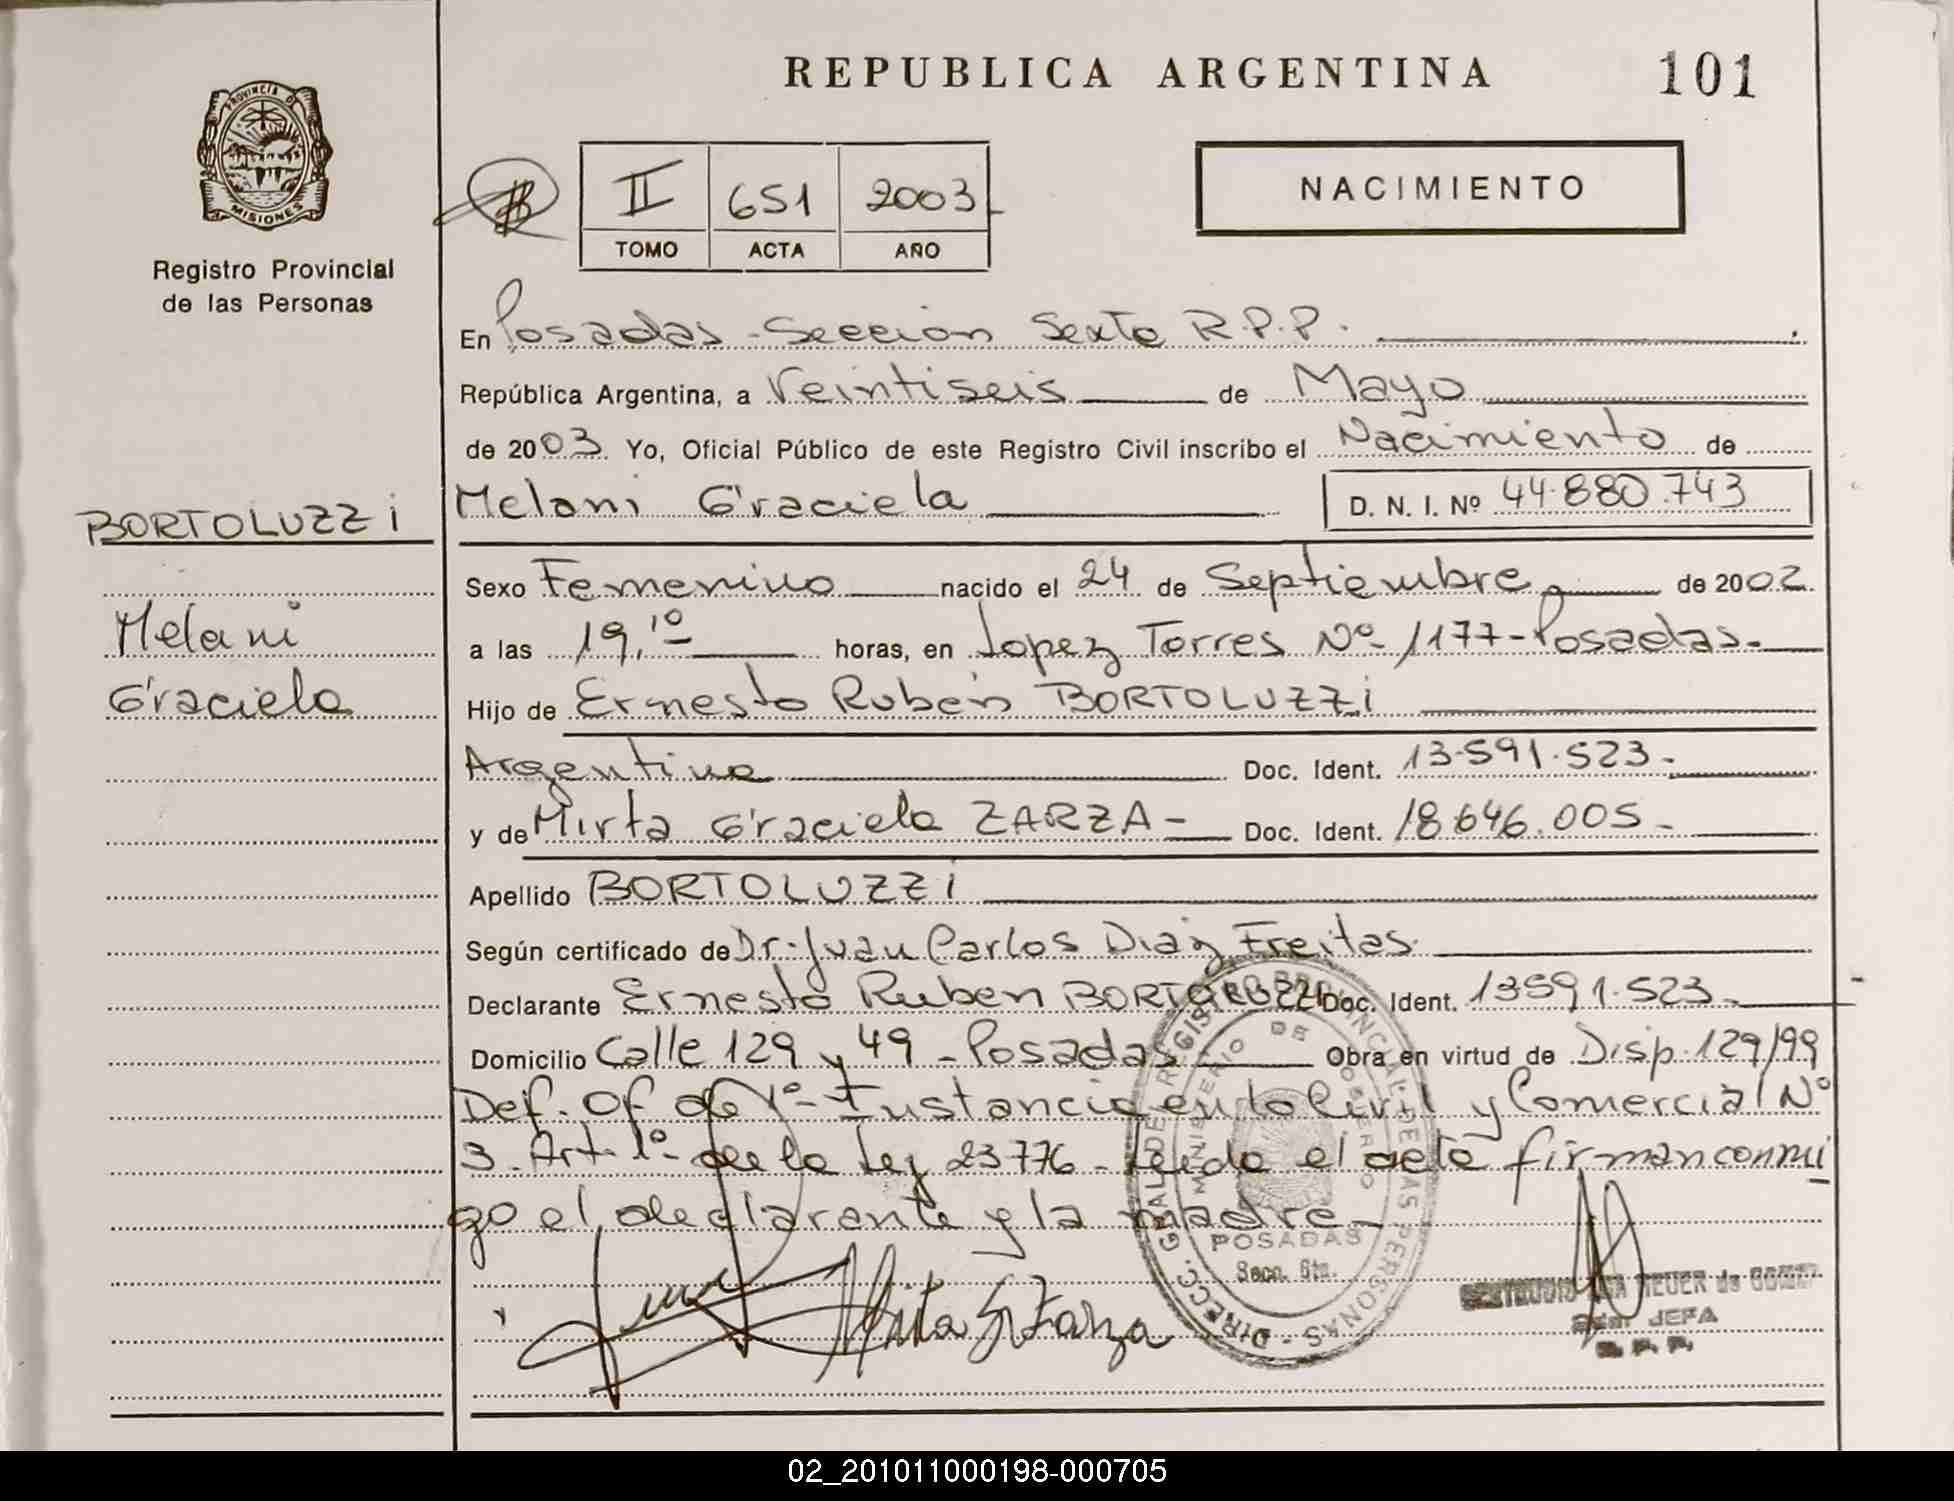 REPUBLICA ARGENTINA
101
PROVINCIA D
MISIONES
Registro Provincial
de las Personas
II 651 2003
TOMO ACTA AÑO
NACIMIENTO
En Posadas - Sección Sexta R.P.P.
República Argentina, a Veintiseis de Mayo
de 2003. Yo, Oficial Público de este Registro Civil inscribo el Nacimiento de
BORTOLUZZI
Melani Graciela
D. N. I. Nº 44.880.743
Sexo Femenino nacido el 24 de Septiembre de 2002.
Melani
a las 19,10 horas, en Lopez Torres Nº 1177 - Posadas.
Graciela
Hijo de Ernesto Ruben BORTOLUZZI
Argentina Doc. Ident. 13.591.523.
y de Mirta Graciela ZARZA - Doc. Ident. 18.646.005 -
Apellido BORTOLUZZI
Según certificado de Dr. Juan Carlos Diaz Freitas.
Declarante Ernesto Ruben BORTOLUZZI Doc. Ident. 13591.523.
Domicilio Calle 129 y 49 - Posadas Obra en virtud de Disp. 129/99
Def. Of de 1º Instancia en lo Civil y Comercial Nº
3. Art. 1º de la Ley 23776 - Leida el acta firman conmi
go el declarante y la madre -
DIRECC. GRAL DE REGISTRO PROVINCIAL DE LAS PERSONAS
MINISTERIO DE GOBIERNO
POSADAS
Secc. 6ta.
JEFA
R. P. P.
02_201011000198-000705